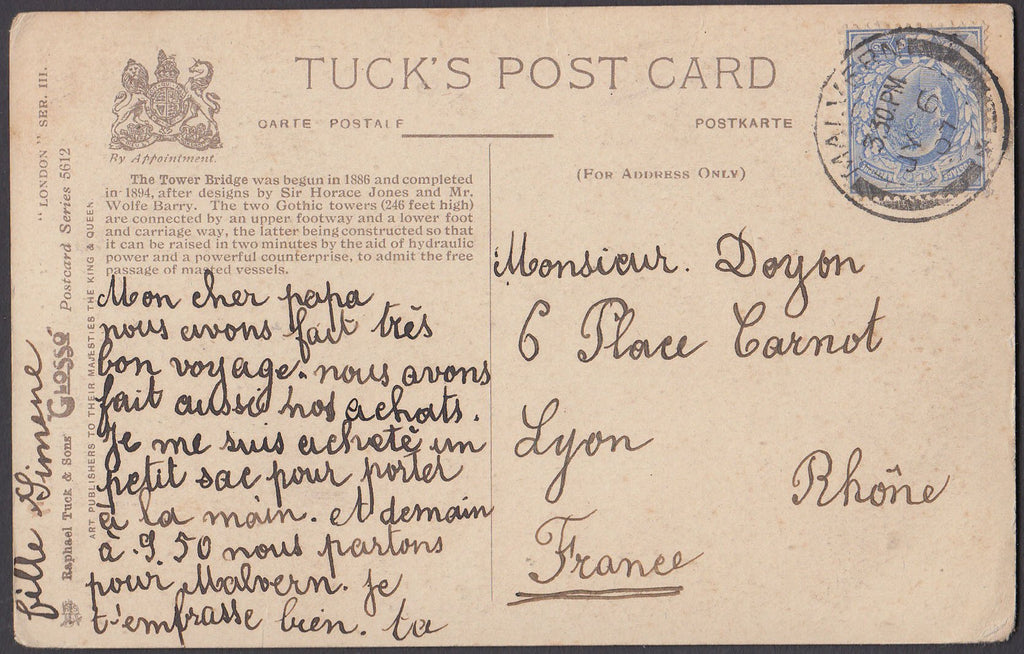 TUCK'S POST CARD
CARTE POSTALE
POSTKARTE
By Appointment.
(For Address Only)
The Tower Bridge was begun in 1886 and completed
in 1894, after designs by Sir Horace Jones and Mr.
Wolfe Barry. The two Gothic towers (246 feet high)
are connected by an upper footway and a lower foot
and carriage way, the latter being constructed so that
it can be raised in two minutes by the aid of hydraulic
power and a powerful counterprise, to admit the free
passage of masted vessels.
"LONDON" SER. III.
Raphael Tuck & Sons' GLOSSO Postcard Series 5612
ART PUBLISHERS TO THEIR MAJESTIES THE KING & QUEEN.
Mon cher papa
nous avons fait très
bon voyage. nous avons
fait aussi nos achats.
Je me suis acheté un
petit sac pour porter
à la main. et demain
à 9.50 nous partons
pour Malvern. je
t'embrasse bien. ta
fille Simene
Monsieur. Doyon
6 Place Carnot
Lyon
Rhône
France
MALVERN
3 30 PM
6
07